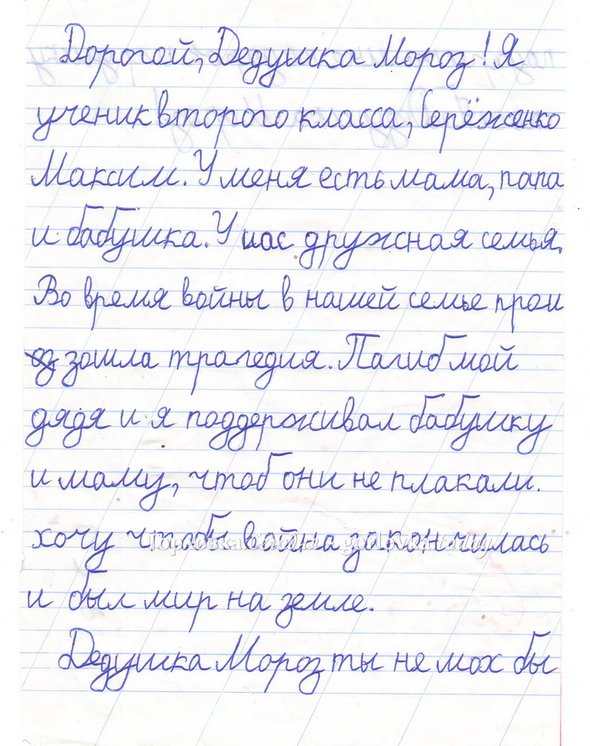 Дорогой, Дедушка Мороз! Я
ученик второго класса, Берёженко
Максим. У меня есть мама, папа
и бабушка. У нас дружная семья.
Во время войны в нашей семье прои
зошла трагедия. Пагиб мой
дядя и я поддерживал бабушку
и маму, чтоб они не плакали.
хочу чтобы война закончилась
и был мир на земле.
Дедушка Мороз ты не мох бы